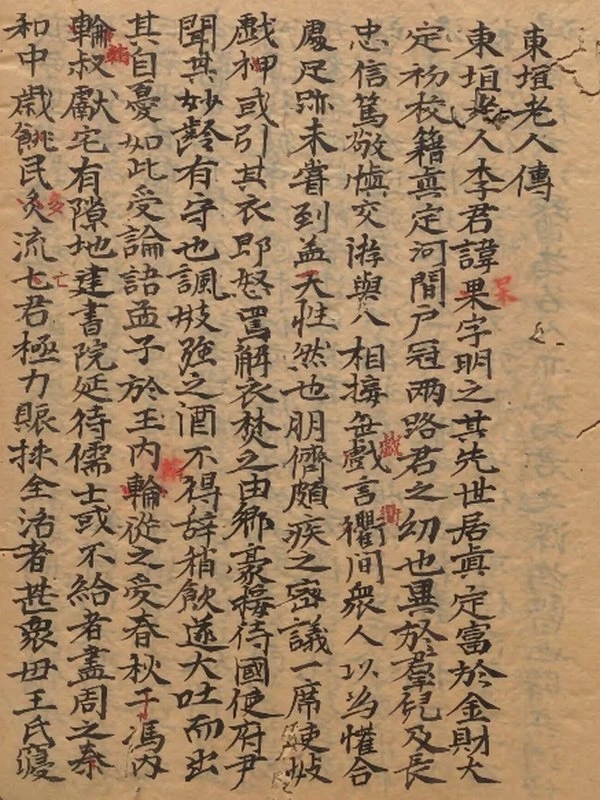 東垣老人傳
東垣老人李君諱果字明之其先世居真定富於金財大
杲
定初校籍真定河間戶冠兩路君之幼也異於羣兒及長
忠信篤敬慎交游與人相接無戲言衢間眾人以為懽合
戲
衢
處足跡未嘗到蓋天性然也朋儕頗疾之密議一席使妓
戲狎或引其衣即怒罵解衣焚之由鄉豪接待國使府尹
聞其妙齡有守也諷妓強之酒不得辭稍飲遂大吐而出
其自憂如此受論語孟子於王内輪從之受春秋于馮内
翰
輪叔獻宅有隙地建書院延待儒士或不給者盡周之泰
翰
和中歲飢民灸流七君極力賑捄全活者甚眾毋王氏寢
多
亡